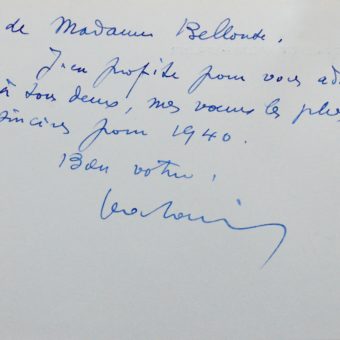 de Madame Bellonde.
J'en profite pour vous ad
à tous deux, mes vœux les plus
sincères pour 1940.
Bien vôtre,